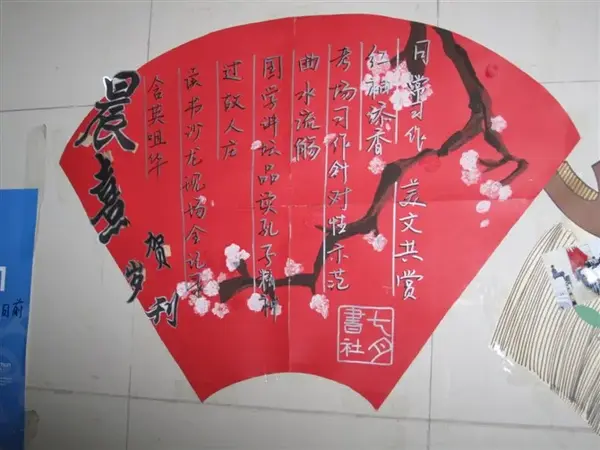 日常习作 美文共赏
红袖添香
考场习作针对性示范
曲水流觞
国学讲坛品读孔子精神
过故人庄
读书沙龙现场全记录
含英咀华
晨熹
贺岁刊
七月
書社
目前